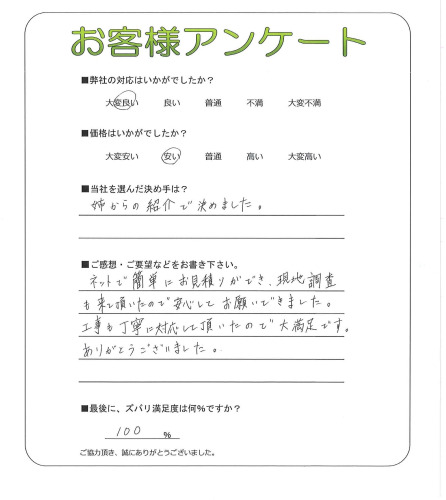 お客様アンケート
■弊社の対応はいかがでしたか？
大変良い 良い 普通 不満 大変不満
■価格はいかがでしたか？
大変安い 安い 普通 高い 大変高い
■当社を選んだ決め手は？
姉からの紹介で決めました。
■ご感想・ご要望などをお書き下さい。
ネットで簡単にお見積りができ、現地調査
も来て頂いたので安心してお願いできました。
工事も丁寧に対応して頂いたので大満足です。
ありがとうございました。
■最後に、ズバリ満足度は何％ですか？
100 ％
ご協力頂き、誠にありがとうございました。